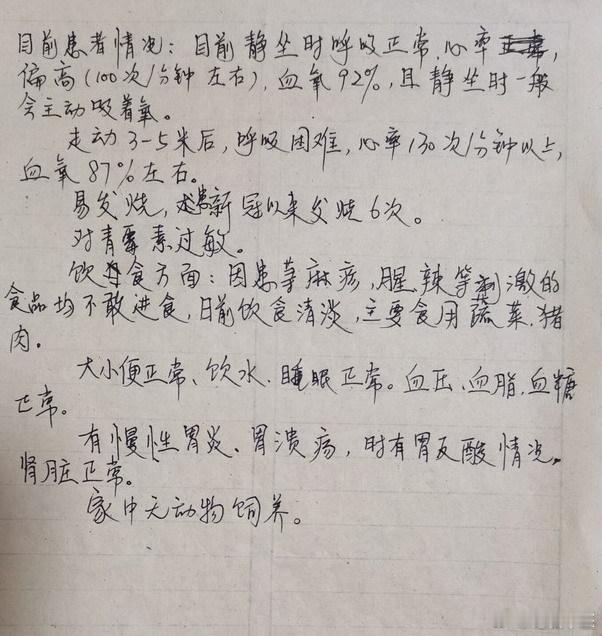 目前患者情况：目前静坐时呼吸正常心率，
偏高(100次/分钟左右)，血氧92%，且静坐时一般
会主动吸着氧。
走动3-5米后，呼吸困难，心率130次/分钟以上，
血氧87%左右。
易发烧，患新冠以来发烧6次。
对青霉素过敏。
饮食方面：因患荨麻疹，腥、辣等刺激的
食品均不敢进食，目前饮食清淡，主要食用蔬菜、猪
肉。
大小便正常、饮水、睡眠正常。血压、血脂、血糖
正常。
有慢性胃炎、胃溃疡，时有胃反酸情况，
肾脏正常。
家中无动物饲养。